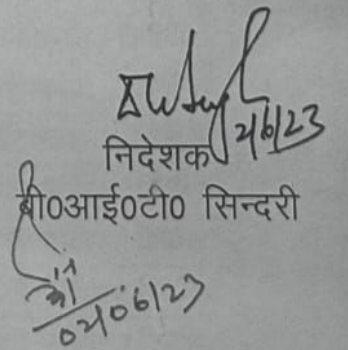 2/6/23
निदेशक
बी०आई०टी० सिन्दरी
02/06/23